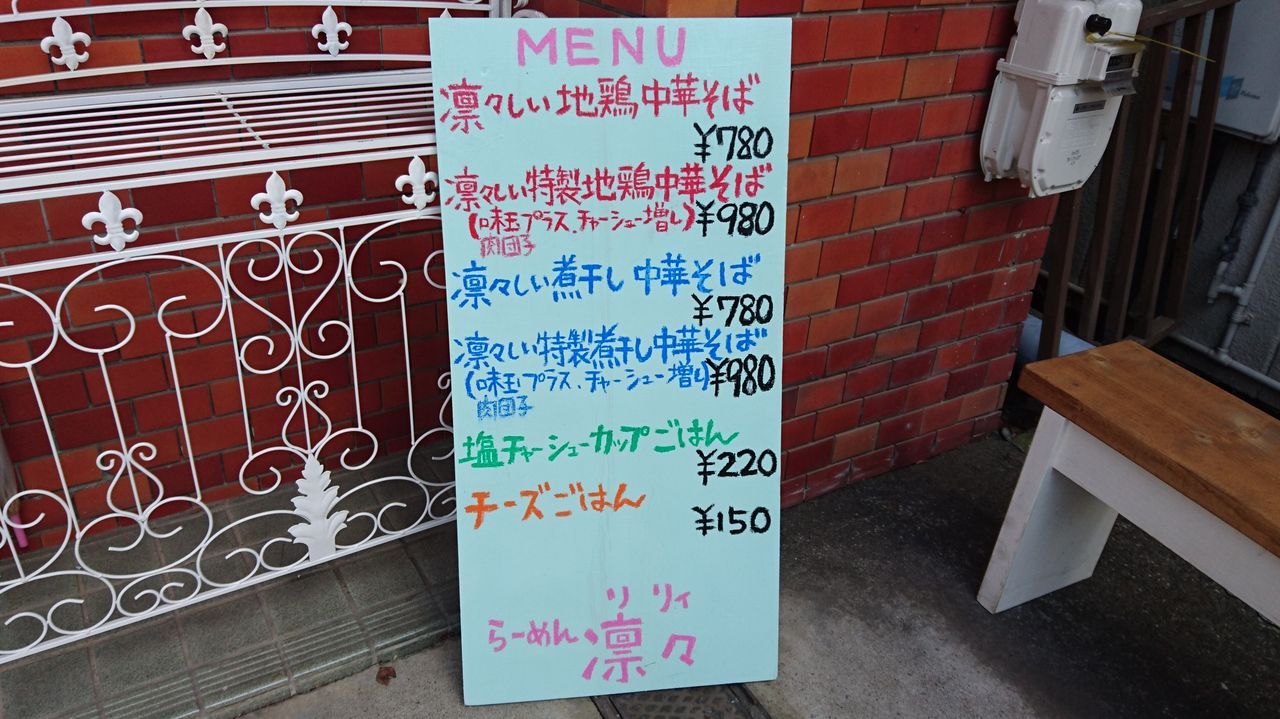 MENU
凛々しい地鶏中華そば
¥780
凛々しい特製地鶏中華そば
(味玉プラス、チャーシュー増し) ¥980
肉団子
凛々しい煮干し中華そば
¥780
凛々しい特製煮干し中華そば
(味玉プラス、チャーシュー増し) ¥980
肉団子
塩チャーシューカップごはん
¥220
チーズごはん
¥150
リリィ
らーめん凛々